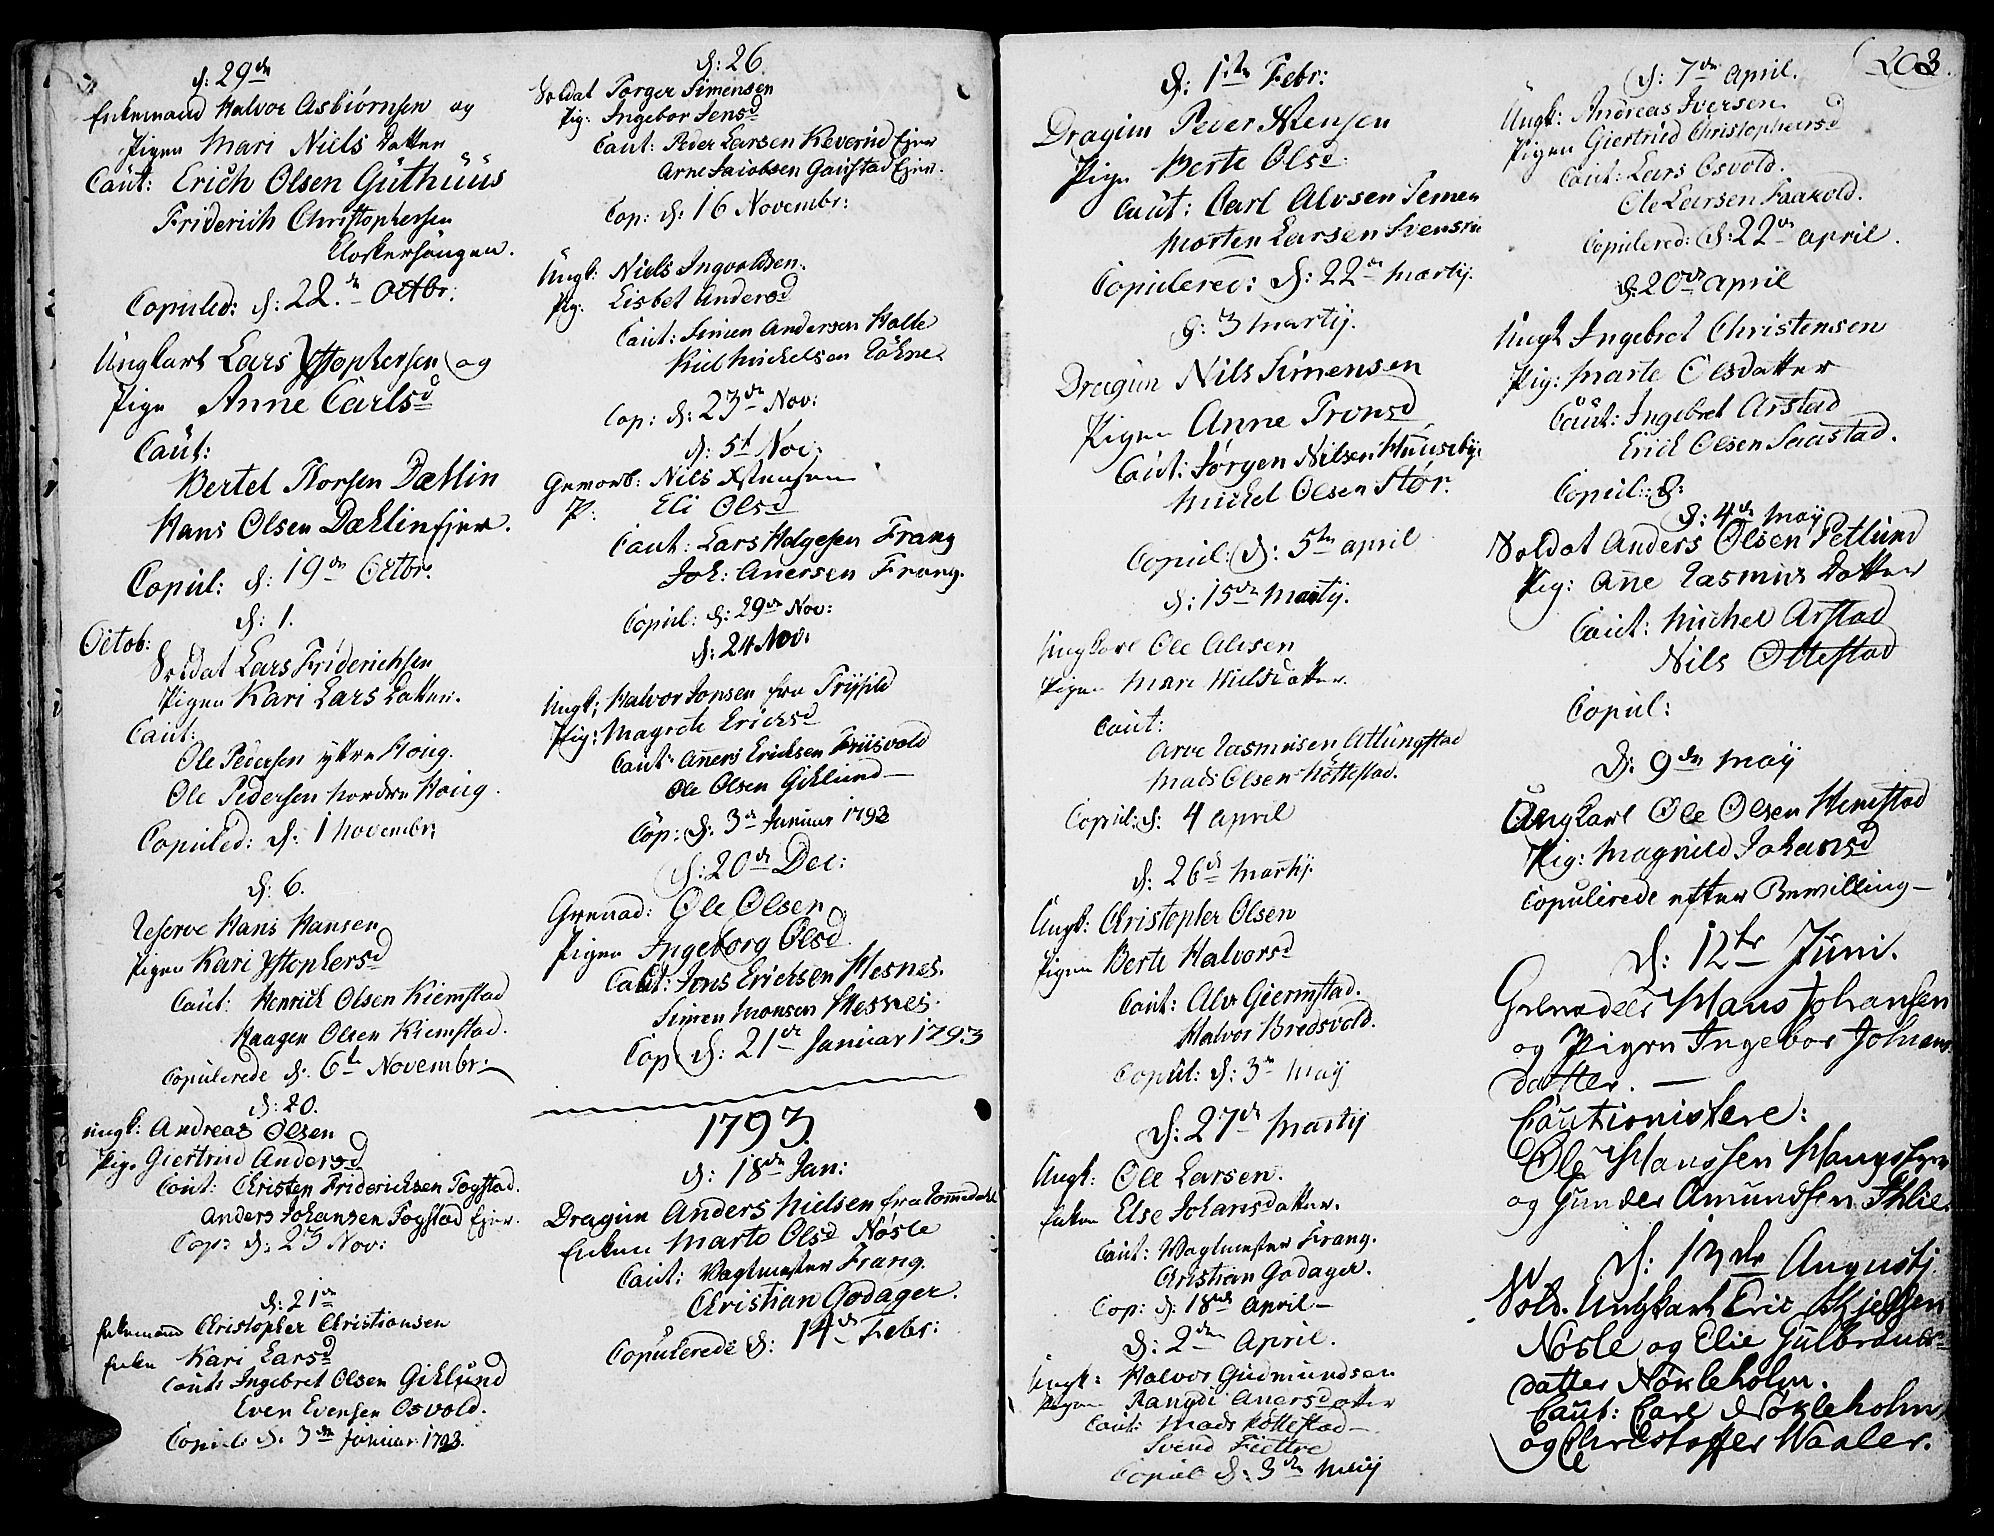 d: 29de
Enkemand Halvor Asbiørnsen og
Pigen Mari Niels Datter
Caut: Erich Olsen Guthuus
Friderich Christophersen
Closterhangen.
Copuled: d: 22.de Octbr:
Ungkarl Lars Xstophersen og
Pige Anne Carlsd
Caut:
Bertel Thorsen Dæhlin
Hans Olsen Dæhlin Ejer.
Copul: d: 19de Octbr:
d: 1.
Octob:
Soldat Lars Friderichsen
Pigen Kari Lars Datter.
Caut:
Ole Pedersen yttre Houg.
Ole Pedersen Nordre Houg.
Copuled: d: 1 Novembr:
d: 6.
Reserve Hans Hansen
Pigen Kari Xstophersd
Caut: Henrich Olsen Kiemstad
Haagen Olsen Kiemstad.
Copulerede d: 6te Novembr:
d: 20.
Ungk: Andreas Olsen
Pig: Giertrud Andersd
Caut: Christen Friderichsen Togstad.
Anders Johansen Togstad Ejer.
Cop: d: 23 Nov:
d: 21de
Enkemand Christopher Christiansen
Enke Kari Larsd
Caut: Ingebret Olsen Gihlund
Even Evensen Osvold.
Copul: d: 3de Januar 1793.
d: 26
Soldat Torger Simensen
Pig: Ingebor Jensd
Caut: Peder Larsen Keverud Ejer
Arne Jacobsen Gaustad Ejer.
Cop: d: 16 Novembr:
Ungk: Niels Ingvoldsen.
Pig. Lisbet Andersd
Caut: Simen Andersen Halle
Kiel Michelsen
Cop: d: 23de Nov:
d: 5t Nov:
Gevorb: Nils Xstensen
P: Eli Olsd
Caut: Lars Helgesen Frang
Joh: Anersen Frang.
Copul: d: 29de Nov:
d: 24 Nov:
Ungk: Halvor Jonsen fra Trysild
Pig: Magrete Ericksd
Caut: Aners Ericksen Friisvold
Ole Olsen Gihlund
Cop: d: 3de Januar 1793
d: 20de Dec:
Grenad: Ole Olsen
Pigen Ingeborg Olsd
Caut: Jens Ericksen Hesnes.
Simen Monsen Hesnes.
Cop d: 21de Januar 1793
1793.
d: 18de Jan:
Dragun Anders Nielsen fra Romedahl
Enken Marte Olsd Nøsle
Caut: Vagtmester Frang.
Christian Godager.
Copulerede d: 14de Febr:
203.
d: 1ste Febr:
Dragun Peder
Pige Berte Olsd:
Caut: Carl Alvsen
Morten Larsen
Copulered: d: 22de Martij.
d: 3 Martij.
Dragun Nils Simensen
Pigen Anne Tronsd
Caut: Jørgen Nilsen Huuseby
Michel Olsen Stør.
Copul: d: 5te april
d: 15de Martij.
Ungkarl Ole Alvsen
Pigen Mari Nielsdatter
Caut:
Arve Rasmusen Atlungstad
Mads Olsen Hottestad.
Copul: d: 4 april
d: 26de Martij.
Ungk: Christopher Olsen
Pigen Berte Halvorsd
Caut: Alv Giermstad.
Halvor Bredsvold.
Copul: d: 3de May
d: 27de Martij
Ungk: Ole Larsen.
Enken Else Johansdatter.
Caut: Vagtmester Frang.
Christian Godager.
Cop: d: 18de April
d: 2den April.
Ungk: Halvor Gudmundsen
Pigen Rangdi Anersdatter
Caut: Mads Hottestad
Svend Fiettre
Copul d: 3de May
d: 7de April.
Ungk: Andreas Iversen
Pigen Giertrud Christophersd
Caut: Lars Osvold.
Ole Larsen Faavold.
Copulered: d: 22de April.
d: 20de april
Ungk Ingebret Christensen
Pig: Marte Olsdatter
Caut: Ingebret Arstad
Erich Olsen Saastad.
Copul: d:
d: 4de May
Soldat Anders Olsen Petlund
Pig: Ane Rasmus Datter
Caut: Michel Arstad
Nils Ottestad
Copul:
d: 9de May
Ungkarl Ole Olsen Hemstad
Pig: Magnild Johansd
Copulerede efter Bewilling
d: 12te Juni.
Grenadeer Hans Johansen
og Pigen Ingebor Johans
datter.
Cautionistere:
Ole Hanssen
og Gunder Amundssen Ihlie
d: 13de Augustj
Sold. Ungkarl Eric Kjelssen
Nøsle og Elie Gulbrands
datter Nøkleholm.
Caut: Carl Nøkleholm
og Christoffer Waaler.